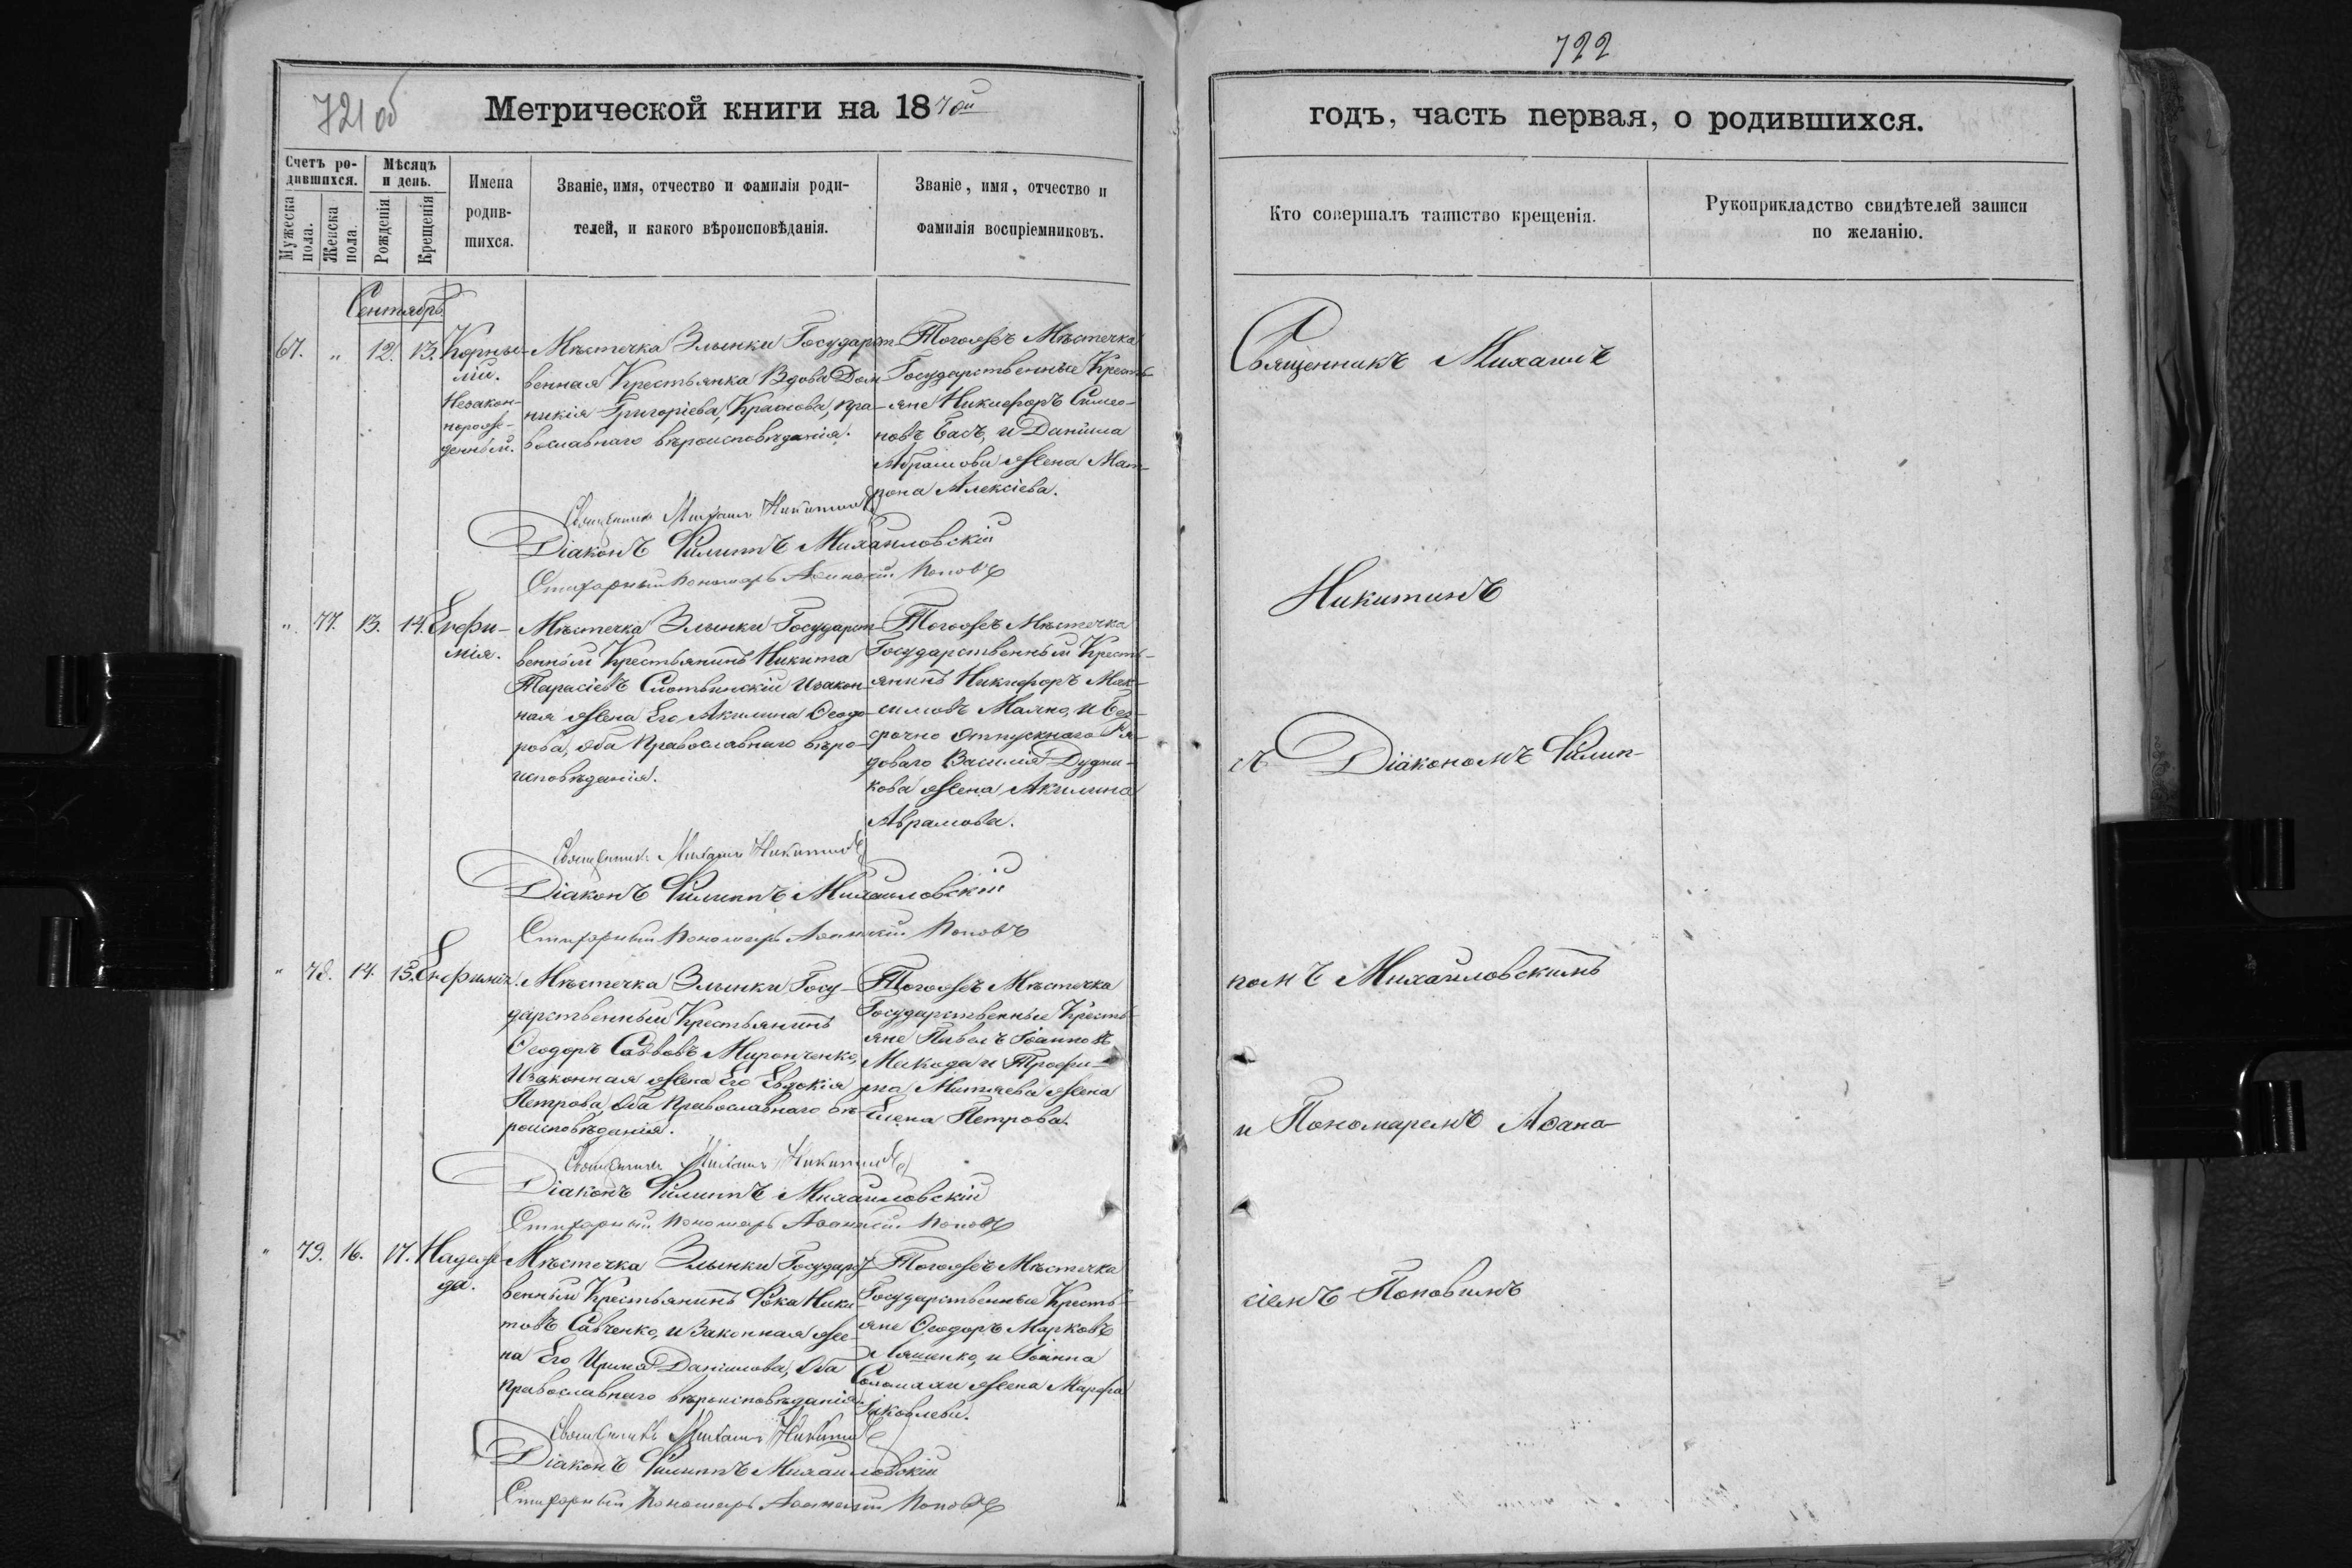 721 об
Метрической книги на 1870й
Счетъ ро-
дившихся.
Мѣсяцъ
и день.
Мужеска
пола.
Женска
пола.
Рожденія
Крещенія
Имена
родив-
шихся.
Званіе, имя, отчество и фамилія роди-
телей, и какого вѣроисповѣданія.
Званіе, имя, отчество и
фамилія воспріемниковъ.
Сентябрь
67. " 12. 13. Корни-
лій.
Незакон-
норож-
денный.
Мѣстечка Злынки Государст-
венная Крестьянка Вдова Дом-
никія Григоріева, Краснова, пра-
вославнаго вѣроисповѣданія.
Тогоже Мѣстечка
Государственные Кресть-
яне Никифоръ Симео-
новъ Басъ, и Даніила
Абрамова жена Мат-
рона Алексіева.
Священникъ Михаилъ Никитинъ
Діаконъ Филиппъ Михайловскій
Стихарный Пономарь Аѳанасій Поповъ
" 77. 13. 14. Евфи-
мія.
Мѣстечка Злынки Государст-
венный Крестьянинъ Никита
Тарасіевъ Слотвинскій Изакон-
ная жена Его Акилина Ѳеодо-
рова, оба Православнаго вѣро-
исповѣданія.
Тогоже Мѣстечка
Государственный Кресть-
янинъ Никифоръ Мак-
симовъ Маяно, и без-
срочно отпускнаго Ря-
доваго Василія Дудни-
кова жена Акилина
Аврамова.
Священникъ Михаилъ Никитинъ
Діаконъ Филиппъ Михайловскій
Стихарный Пономарь Аѳанасій Поповъ
" 78. 14. 15. Евфимія.
Мѣстечка Злынки Госу-
дарственный Крестьянинъ
Ѳеодоръ Саввовъ Миронченко,
Изаконная жена Его Евдокія
Петрова, оба Православнаго вѣ-
роисповѣданія.
Тогоже Мѣстечка
Государственные Кресть-
яне Павелъ Іоанновъ
Макода и Трофи-
ма Митяева жена
Елена Петрова.
Священникъ Михаилъ Никитинъ
Діаконъ Филиппъ Михайловскій
Стихарный Пономарь Аѳанасій Поповъ
" 79. 16. 17. Надеж-
да.
Мѣстечка Злынки Государст-
венный Крестьянинъ Фока Ники-
товъ Савченко, и Законная же-
на Его Ирина Даніилова, Оба
Православнаго вѣроисповѣданія.
Тогоже Мѣстечка
Государственные Кресть-
яне Ѳеодоръ Марковъ
Ляшенко, и Іоанна
Соломахи жена Марфа
Іаковлева.
Священникъ Михаилъ Никитинъ
Діаконъ Филиппъ Михайловскій
Стихарный Пономарь Аѳанасій Поповъ
722
годъ, часть первая, о родившихся.
Кто совершалъ таинство крещенія.
Рукоприкладство свидѣтелей записи
по желанію.
Священникъ Михаилъ
Никитинъ
съ Діакономъ Филип-
помъ Михайловскимъ
и Пономаремъ Аѳана-
сіемъ Поповымъ